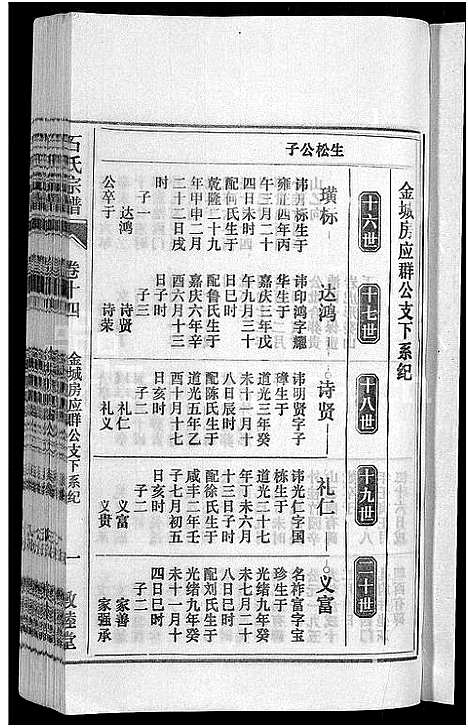 金城房应群公支下系纪
十六世
十七世
十八世
十九世
二十世
生松公子
璜标
讳 标生于
雍正四年丙
午三月二十
四日未时
配何氏生于
乾隆二十九
年甲申二月
二十二日戌
时
子一
达鸿
公卒于
达鸿
讳印鸿字耀
华生于
嘉庆三年戊
午九月三十
日巳时
配鲁氏生于
嘉庆六年辛
酉六月十三
日子时
子三
诗贤
诗荣
诗贤
讳明贤字子
璋生于
道光三年癸
未十一月十
八日辰时
配陈氏生于
道光五年乙
酉十月十七
日亥时
子二
礼仁
礼义
礼仁
讳光仁字国
栋生于
道光二十七
年丁未六月
十三日子时
配徐氏生于
咸丰二年壬
子七月初五
日亥时
子二
义富
义贵
义富
名祚富字宝
珍生于
光绪九年癸
未七月二十
日亥时
配刘氏生于
光绪九年癸
未十一月十
四日巳时
子二
家善
家强承
石氏宗谱
卷十四
金城房应群公支下系纪
一
敦睦堂